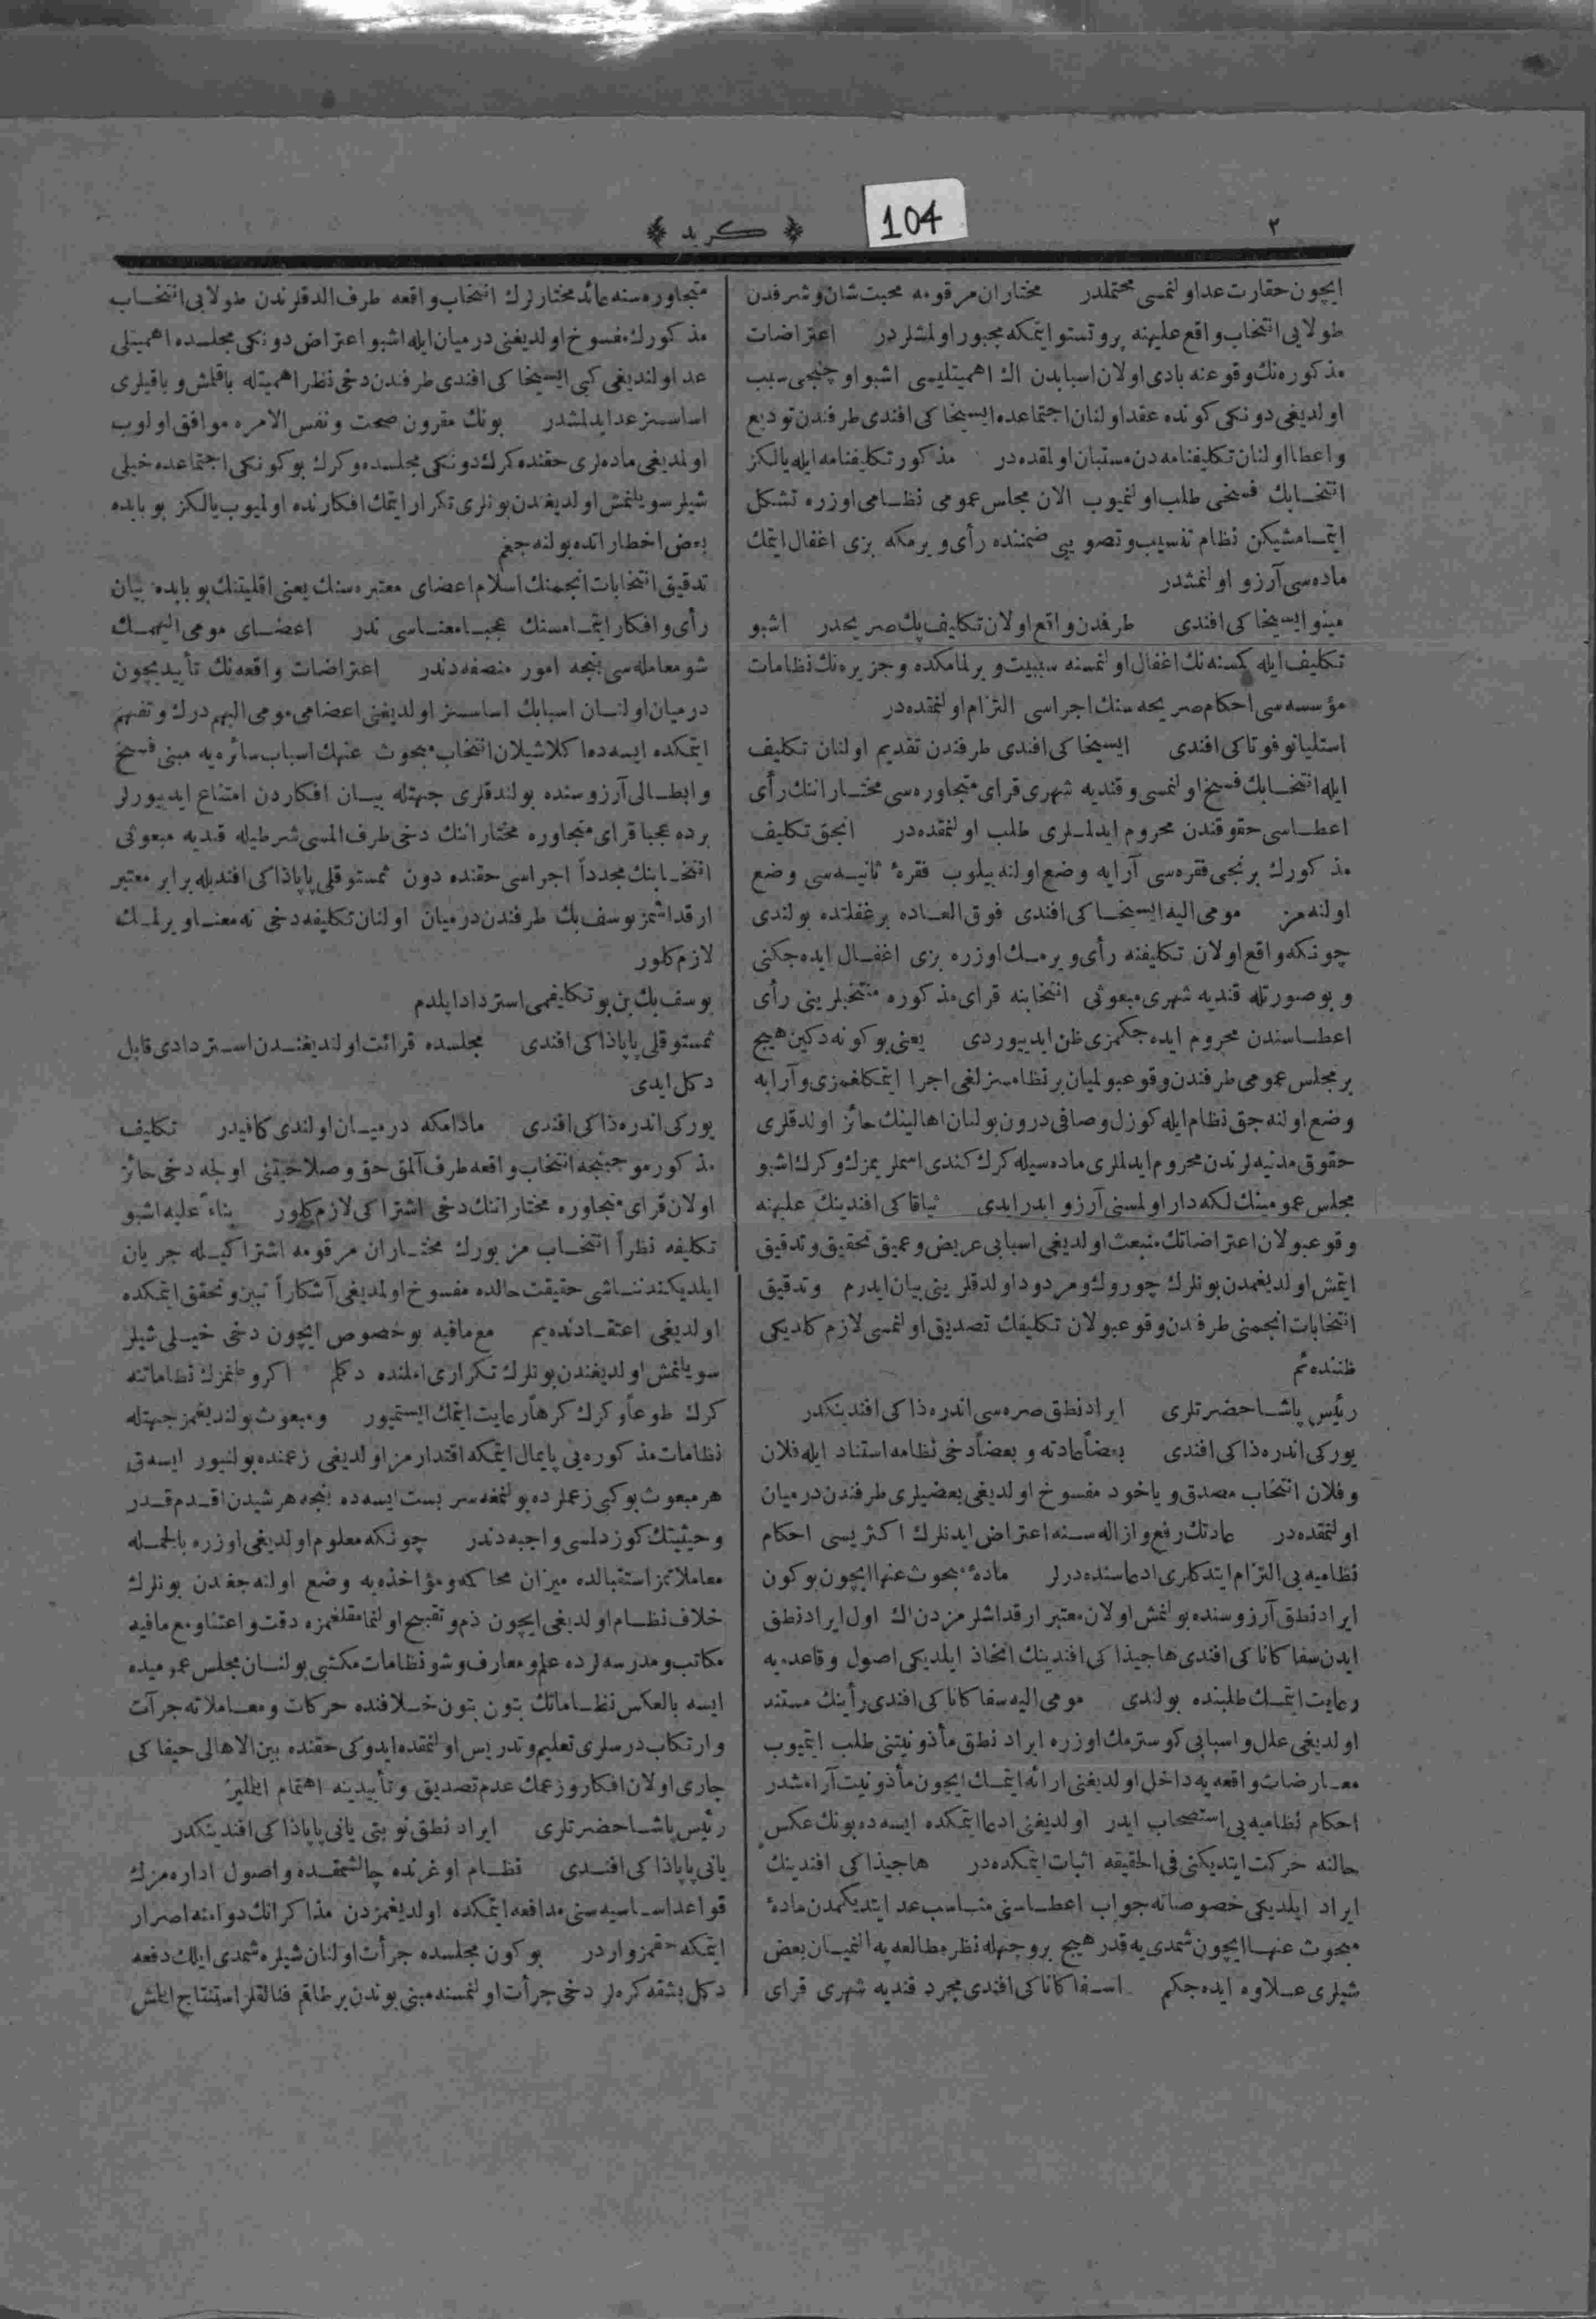 ٢
104
كريد
ايچون حقارت عد اولنمسى محتملدر مختاران مرقومه محبت شان و شرفدن
طولايى انتخاب واقع عليهنه پروتستو ايتمكه مجبور اولمشلردر اعتراضات
مذكوره‌نك وقوعنه بادى اولان اسبابدن اك اهميتليسى اشبو اوچنجى سبب
اولديغى دونكى كونده عقد اولنان اجتماعده ايسيخاكى افندى طرفندن توديع
و اعطا اولنان تكليفنامه‌دن مستبان اولمقده‌در مذكور تكليفنامه ايله يالكز
انتخابك فسخى طلب اولنميوب الان مجلس عمومى نظامى اوزره تشكل
ايتمامشيكن نظام تفسيب و تصويبى ضمننده رأى ويرمكه بزى اغفال ايتمك
ماده‌سى آرزو اولنمشدر
مينو ايسيخاكى افندى طرفدن واقع اولان تكاليف پك صريحدر اشبو
تكليف ايله كمسنه‌نك اغفال اولنمسنه سببيت ويرلمامكده و جزيره‌نك نظامات
مؤسسه‌سى احكام صريحه‌سنك اجراسى التزام اولنمقده‌در
استليانو فوتاكى افندى ايسيخاكى افندى طرفندن تقديم اولنان تكليف
ايله انتخابك فسخ اولنمسى و قنديه شهرى قراى متجاوره‌سى مختاراننك رأى
اعطاسى حقوقندن محروم ايدلملرى طلب اولنمقده‌در انجق تكليف
مذكورك برنجى فقره‌سى آرايه وضع اولنه‌بيلوب فقرهٔ ثانيه‌سى وضع
اولنه‌مز مومى اليه ايسيخاكى افندى فوق العاده بر غفلتده بولندى
چونكه واقع اولان تكليفنه رأى ويرمك اوزره بزى اغفال ايده‌جكنى
و بو صورتله قنديه شهرى مبعوثى انتخابنه قراى مذكوره منتخبلرينى رأى
اعطاسندن محروم ايده‌جكمزى ظن ايدييوردى يعنى بوكونه دكين هيچ
بر مجلس عمومى طرفندن وقوعبولميان بر نظامسزلغى اجرا ايتمكلغمزى و آرايه
وضع اولنه‌جق نظام ايله كوزل و صافى درون بولنان اهالينك حائز اولدقلرى
حقوق مدنيه‌لرندن محروم ايدلملرى ماده‌سيله كرك كندى اسملريمزك و كرك اشبو
مجلس عمومينك لكه‌دار اولمسنى آرزو ايدر ايدى ثياقاكى افندينك عليهنه
وقوعبولان اعتراضاتك منبعث اولديغى اسبابى عريض و عميق تحقيق و تدقيق
ايتمش اولديغمدن بونلرك چوروك و مردود اولدقلرينى بيان ايدرم و تدقيق
انتخابات انجمنى طرفندن وقوعبولان تكليفك تصديق اولنمسى لازم كلديكى
ظننده‌يم
رئيس پاشا حضرتلرى ايراد نطق صره‌سى اندره‌ذاكى افندينكدر
يوركى اندره‌ذاكى افندى بعضاً عادته و بعضاً دخى نظامه استناد ايله فلان
و فلان انتخاب مصدق و ياخود مفسوخ اولديغى بعضيلرى طرفندن درميان
اولنمقده‌در عادتك رفع و ازاله‌سنه اعتراض ايدنلرك اكثريسى احكام
نظاميه‌يى التزام ايتدكلرى ادعاسنده‌درلر مادهٔ مبحوث عنها ايچون بوكون
ايراد نطق آرزوسنده بولنمش اولان معتبر ارقداشلرمزدن اك اول ايراد نطق
ايدن سفاكاناكى افندى هاجيذاكى افندينك اتخاذ ايلديكى اصول و قاعده‌يه
رعايت ايتمك طلبنده بولندى مومى اليه سفاكاناكى افندى رأينك مستند
اولديغى علل و اسبابى كوسترمك اوزره ايراد نطق مأذونيتنى طلب ايتميوب
معارضات واقعه‌يه داخل اولديغنى ارائه ايتمك ايچون مأذونيت آرامشدر
احكام نظاميه‌يى استصحاب ايدر اولديغنى ادعا ايتمكده ايسه‌ده بونك عكس
حالنه حركت ايتديكنى فى الحقيقه اثبات ايتمكده‌در هاجيذاكى افندينك
ايراد ايلديكى خصوصاته جواب اعطاسنى مناسب عد ايتديكمدن مادهٔ
مبحوث عنها ايچون شمدى‌يه قدر هيچ بر وجهله نظر مطالعه‌يه النميان بعض
شيلرى علاوه ايده‌جكم اسفاكاناكى افندى مجرد قنديه شهرى قراى
متجاوره‌سنه عائد مختارلرك انتخاب واقعه طرف الدقلرندن طولايى انتخاب
مذكورك مفسوخ اولديغنى درميان ايله اشبو اعتراض دونكى مجلسده اهميتلى
عد اولنديغى كبى ايسيخاكى افندى طرفندن دخى نظر اهميتله باقلمش و باقيلرى
اساسسز عد ايدلمشدر بونك مقرون صحت و نفس الامره موافق اولوب
اولمديغى ماده‌لرى حقنده كرك دونكى مجلسده و كرك بوكونكى اجتماعده خيلى
شيلر سويلنمش اولديغندن بونلرى تكرار ايتمك افكارنده اولميوب يالكز بو بابده
بعض اخطاراتده بولنه‌جغم
تدقيق انتخابات انجمننك اسلام اعضاى معتبره‌سنك يعنى اقليتنك بو بابده بيان
رأى و افكار ايتمامسنك عجبا معناسى ندر اعضاى مومى اليهمك
شو معامله‌سى بنجه امور منصفه‌دندر اعتراضات واقعه‌نك تأييديچون
درميان اولنان اسبابك اساسسز اولديغنى اعضاى مومى اليهم درك و تفهم
ايتمكده ايسه‌ده اكلاشيلان انتخاب مبحوث عنهك اسباب سائره‌يه مبنى فسخ
و ابطالى آرزوسنده بولندقلرى جهتله بيان افكاردن امتناع ايدييورلر
برده عجبا قراى متجاوره مختاراننك دخى طرف المسى شرطيله قنديه مبعوثى
انتخابنك مجدداً اجراسى حقنده دون ثمستوقلى پاپاذاكى افنديله برابر معتبر
ارقداشمز يوسف بك طرفندن درميان اولنان تكليفه دخى نه معنا ويرلمك
لازم كلور
يوسف بك بن بو تكليفمى استرداد ايلدم
ثمستوقلى پاپاذاكى افندى مجلسده قرائت اولنديغندن استردادى قابل
دكل ايدى
يوركى اندره‌ذاكى افندى مادامكه درميان اولندى كافيدر تكليف
مذكور موجبنجه انتخاب واقعه طرف آلمق حق و صلاحيتنى اولجه دخى حائز
اولان قراى متجاوره مختاراننك دخى اشتراكى لازم كلور بناءً عليه اشبو
تكليفه نظراً انتخاب مزبورك مختاران مرقومه اشتراكيله جريان
ايلديكندن ناشى حقيقت حالده مفسوخ اولمديغى آشكاراً تبين و تحقق ايتمكده
اولديغى اعتقادنده‌يم مع مافيه بو خصوص ايچون دخى خيلى شيلر
سويلنمش اولديغندن بونلرك تكرارى املنده دكلم اكر وطنمزك نظاماتنه
كرك طوعاً و كرك كرهاً رعايت ايتمك ايستميور و مبعوث بولنديغمز جهتله
نظامات مذكوره‌يى پايمال ايتمكه اقتدارمز اولديغى زعمنده بولنيور ايسه‌ق
هر مبعوث بو كبى زعملرده بولنمغه سربست ايسه‌ده بنجه هر شيدن اقدم قدر
و حيثيتك كوزدلمسى واجبه‌دندر چونكه معلوم اولديغى اوزره بالجمله
معاملاتمز استقبالده ميزان محاكمه و مؤاخذه‌يه وضع اولنه‌جغندن بونلرك
خلاف نظام اولديغى ايچون ذم و تقبيح اولنمامقلغمزه دقت و اعتنا و مع مافيه
مكاتب و مدرسه‌لرده علم و معارف و شو نظامات مكتبى بولنان مجلس عموميده
ايسه بالعكس نظاماتك بتون بتون خلافنده حركات و معاملاته جرآت
و ارتكاب درسلرى تعليم و تدريس اولنمقده ايدوكى حقنده بين الاهالى حيفاكى
جارى اولان افكار و زعمك عدم تصديق و تأييدينه اهتمام ايتمليز
رئيس پاشا حضرتلرى ايراد نطق نوبتى يانى پاپاذاكى افندينكدر
يانى پاپاذاكى افندى نظام اوغرنده چالشمقده و اصول اداره‌مزك
قواعد اساسيه‌سنى مدافعه ايتمكده اولديغمزدن مذاكراتك دوامنه اصرار
ايتمكه حقمز واردر بوكون مجلسده جرأت اولنان شيلره شمدى ايلك دفعه
دكل بشقه كره‌لر دخى جرأت اولنمسنه مبنى بوندن بر طاقم فنالقلر استنتاج ايتمش